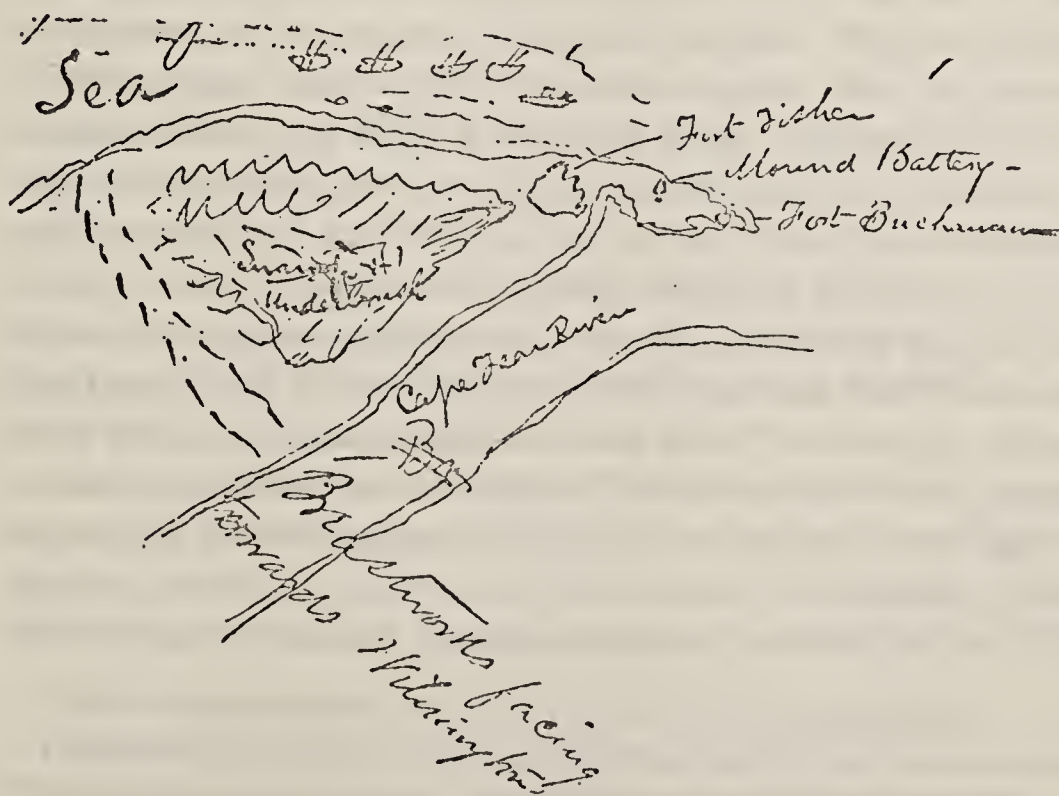 Sea
Fort Fisher
Mound Battery -
Fort Buchanan
&
Underbrush
Cape Fear River
Bay
Breastworks facing
towards Wilmington